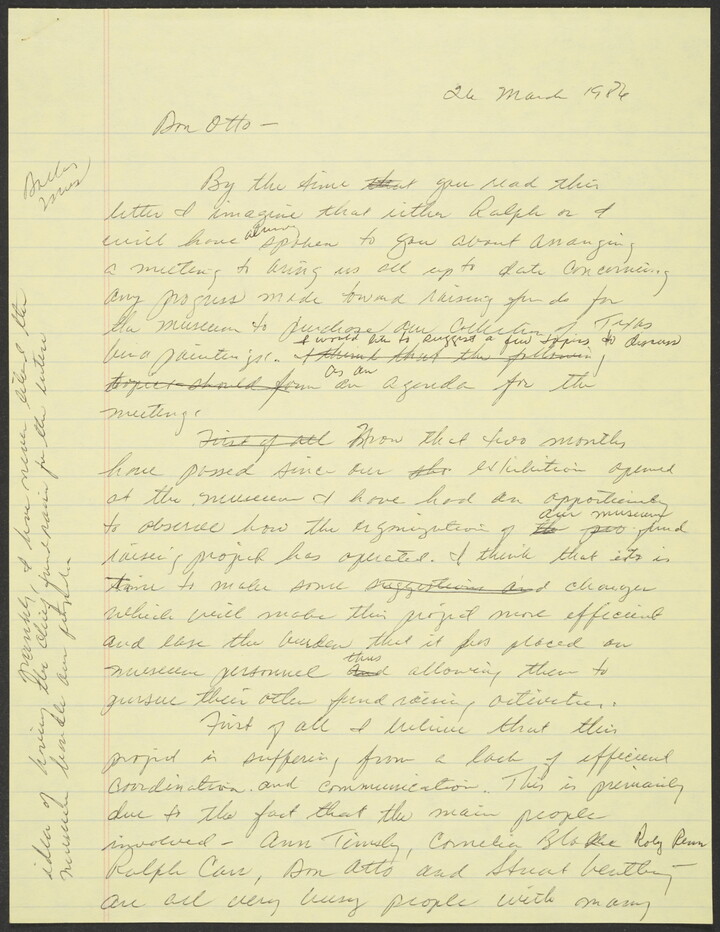 26 March 1986
Don Otto —
By the time that you read this
letter I imagine that either Ralph or I
will have already spoken to you about arranging
a meeting to bring us all up to date concerning
any progress made toward raising funds for
the museum to purchase our Collection of Texas
I would like to suggest a few topics to discuss
paintings. I think that the following
as an
topics should form an agenda for the
meeting.
First of all Now that two months
have passed since our the exhibition opened
at the museum I have had an opportunity
our museum
to observe how the organization of the fund
raising project has operated. I think that it is
time to make some suggestions and changes
which will make this project more efficient
and ease the burden that it has placed on
thus
museum personnel and allowing them to
pursue their other fund raising activities.
First of all I believe that this
project is suffering from a lack of efficient
coordination and communication. This is primarily
due to the fact that the main people
involved — Ann Timely, Cornelia Blake Roby Penn
Ralph Carr, Don Otto and Stuart
are all very busy people with many
Dallas
Frankly, I have never liked the
idea of having the Chief fund raiser for the entire
museum handle our